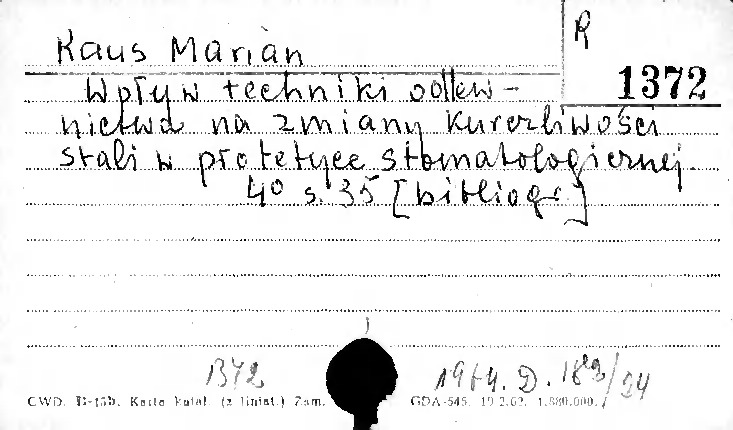 Kaus Marian
R
1372
Wpływ techniki odlew-
nictwa na zmiany kurczliwości
stali w protetyce stomatologicznej.
4° s. 35 [bibliogr.]
1372
1964. D. 182/24
CWD. B-13b. Karta katal. (z liniat.) Zam. GDA-545. 19.2.62. 1.880.000.